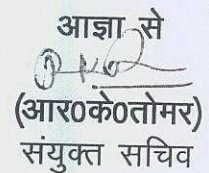 आज्ञा से
(आर0के0तोमर)
संयुक्त सचिव